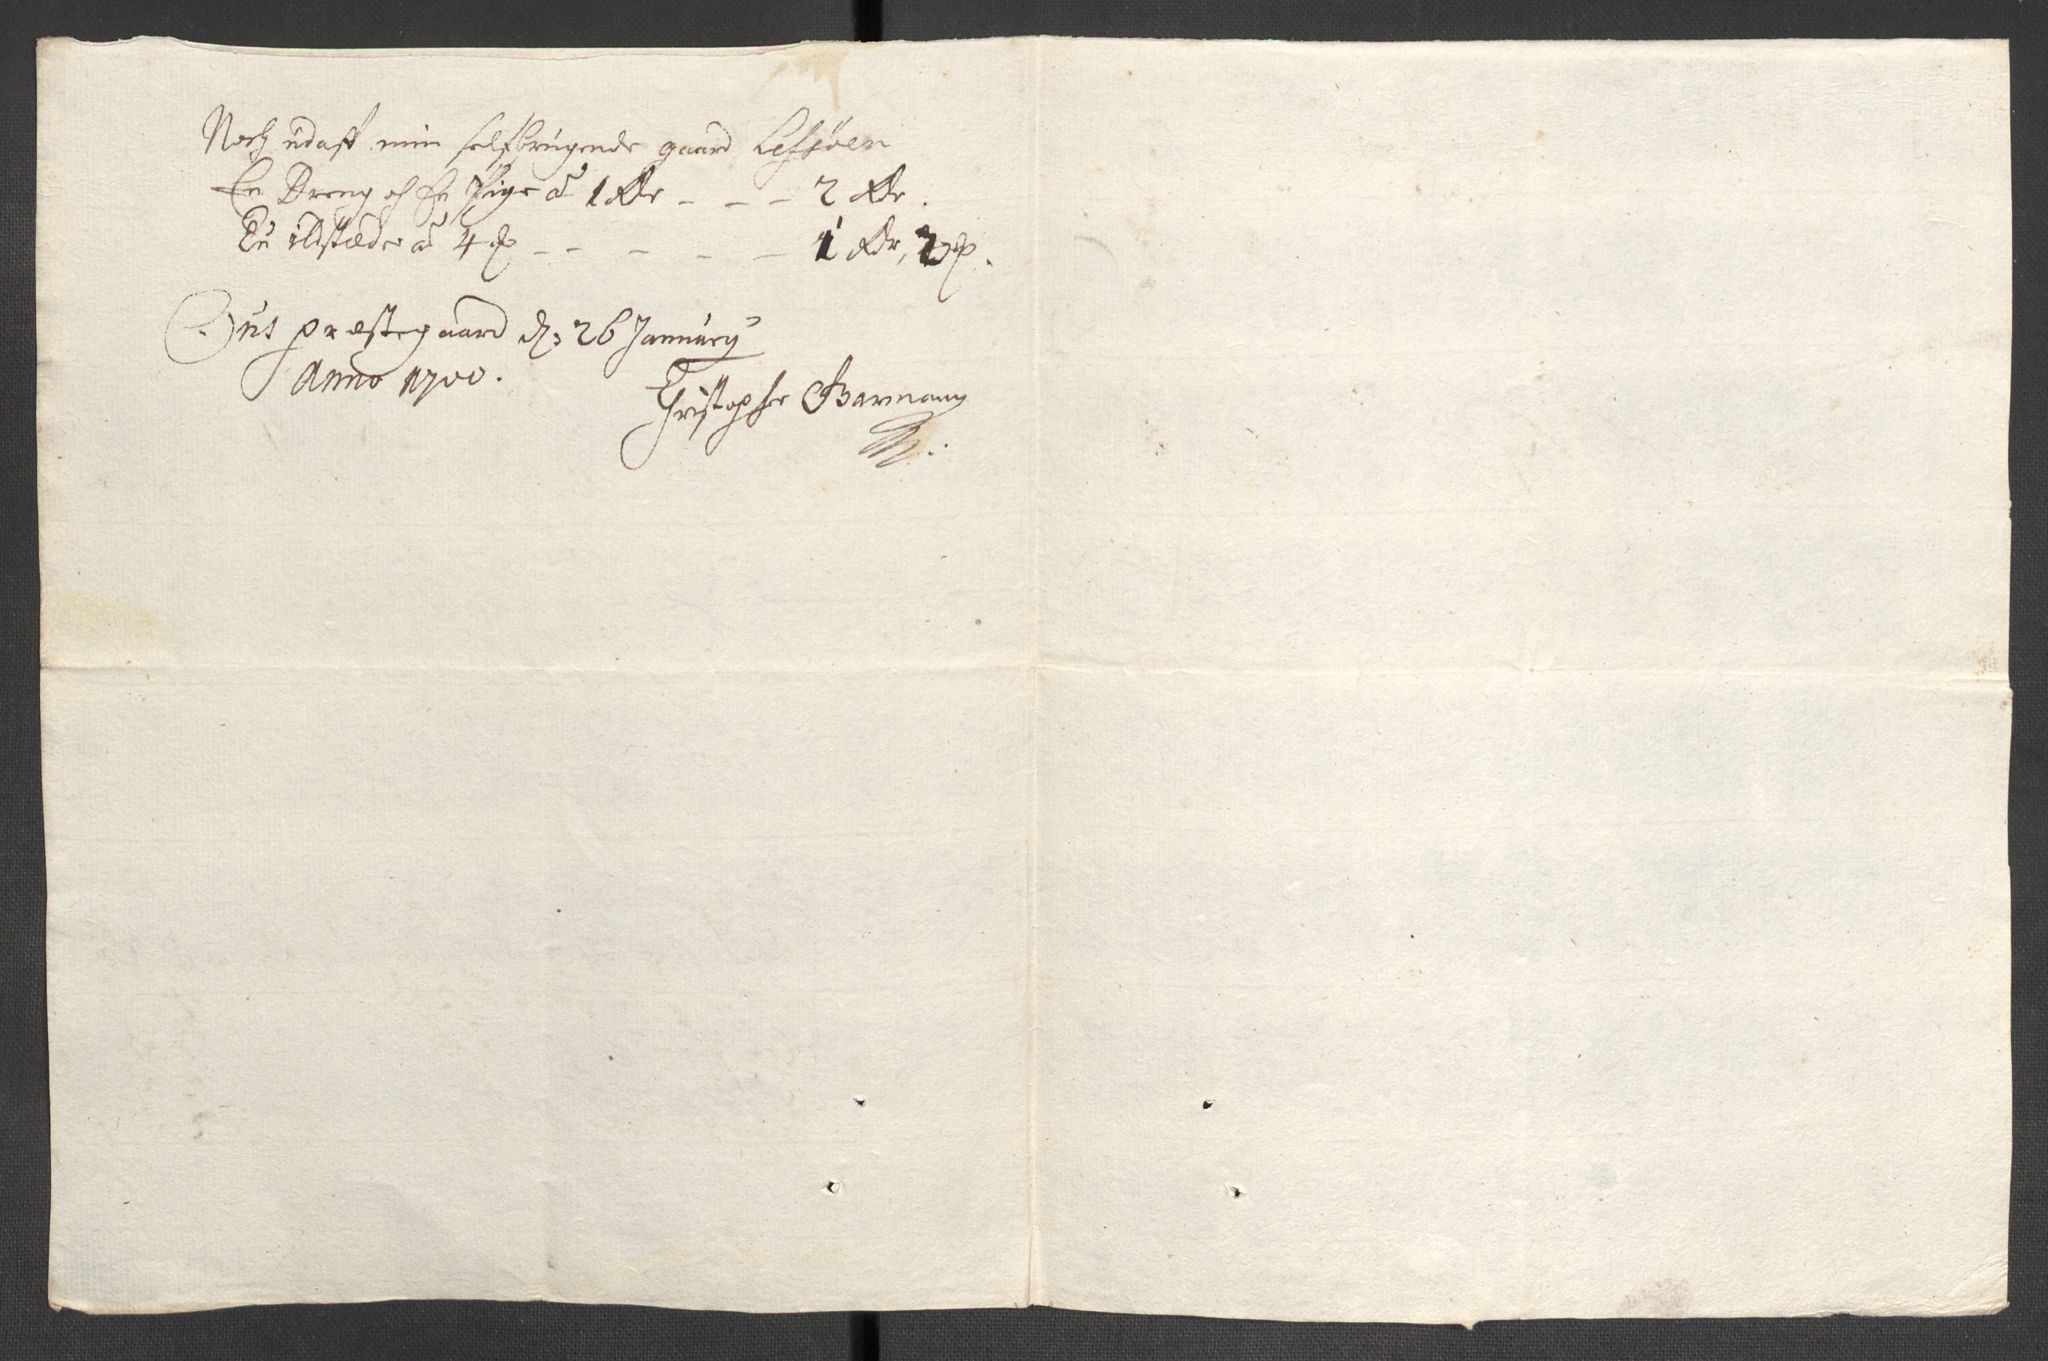 Noch udaff min selfbrugende gaard Lessøen
En Dreng och En Pige a 1 Rdr - - - 2 Rdr.
Tu ildstæder a 4 - - - - - 1 Rdr,
Hus præstegaard d: 26 January
Anno 1700.
Christopher Barmann